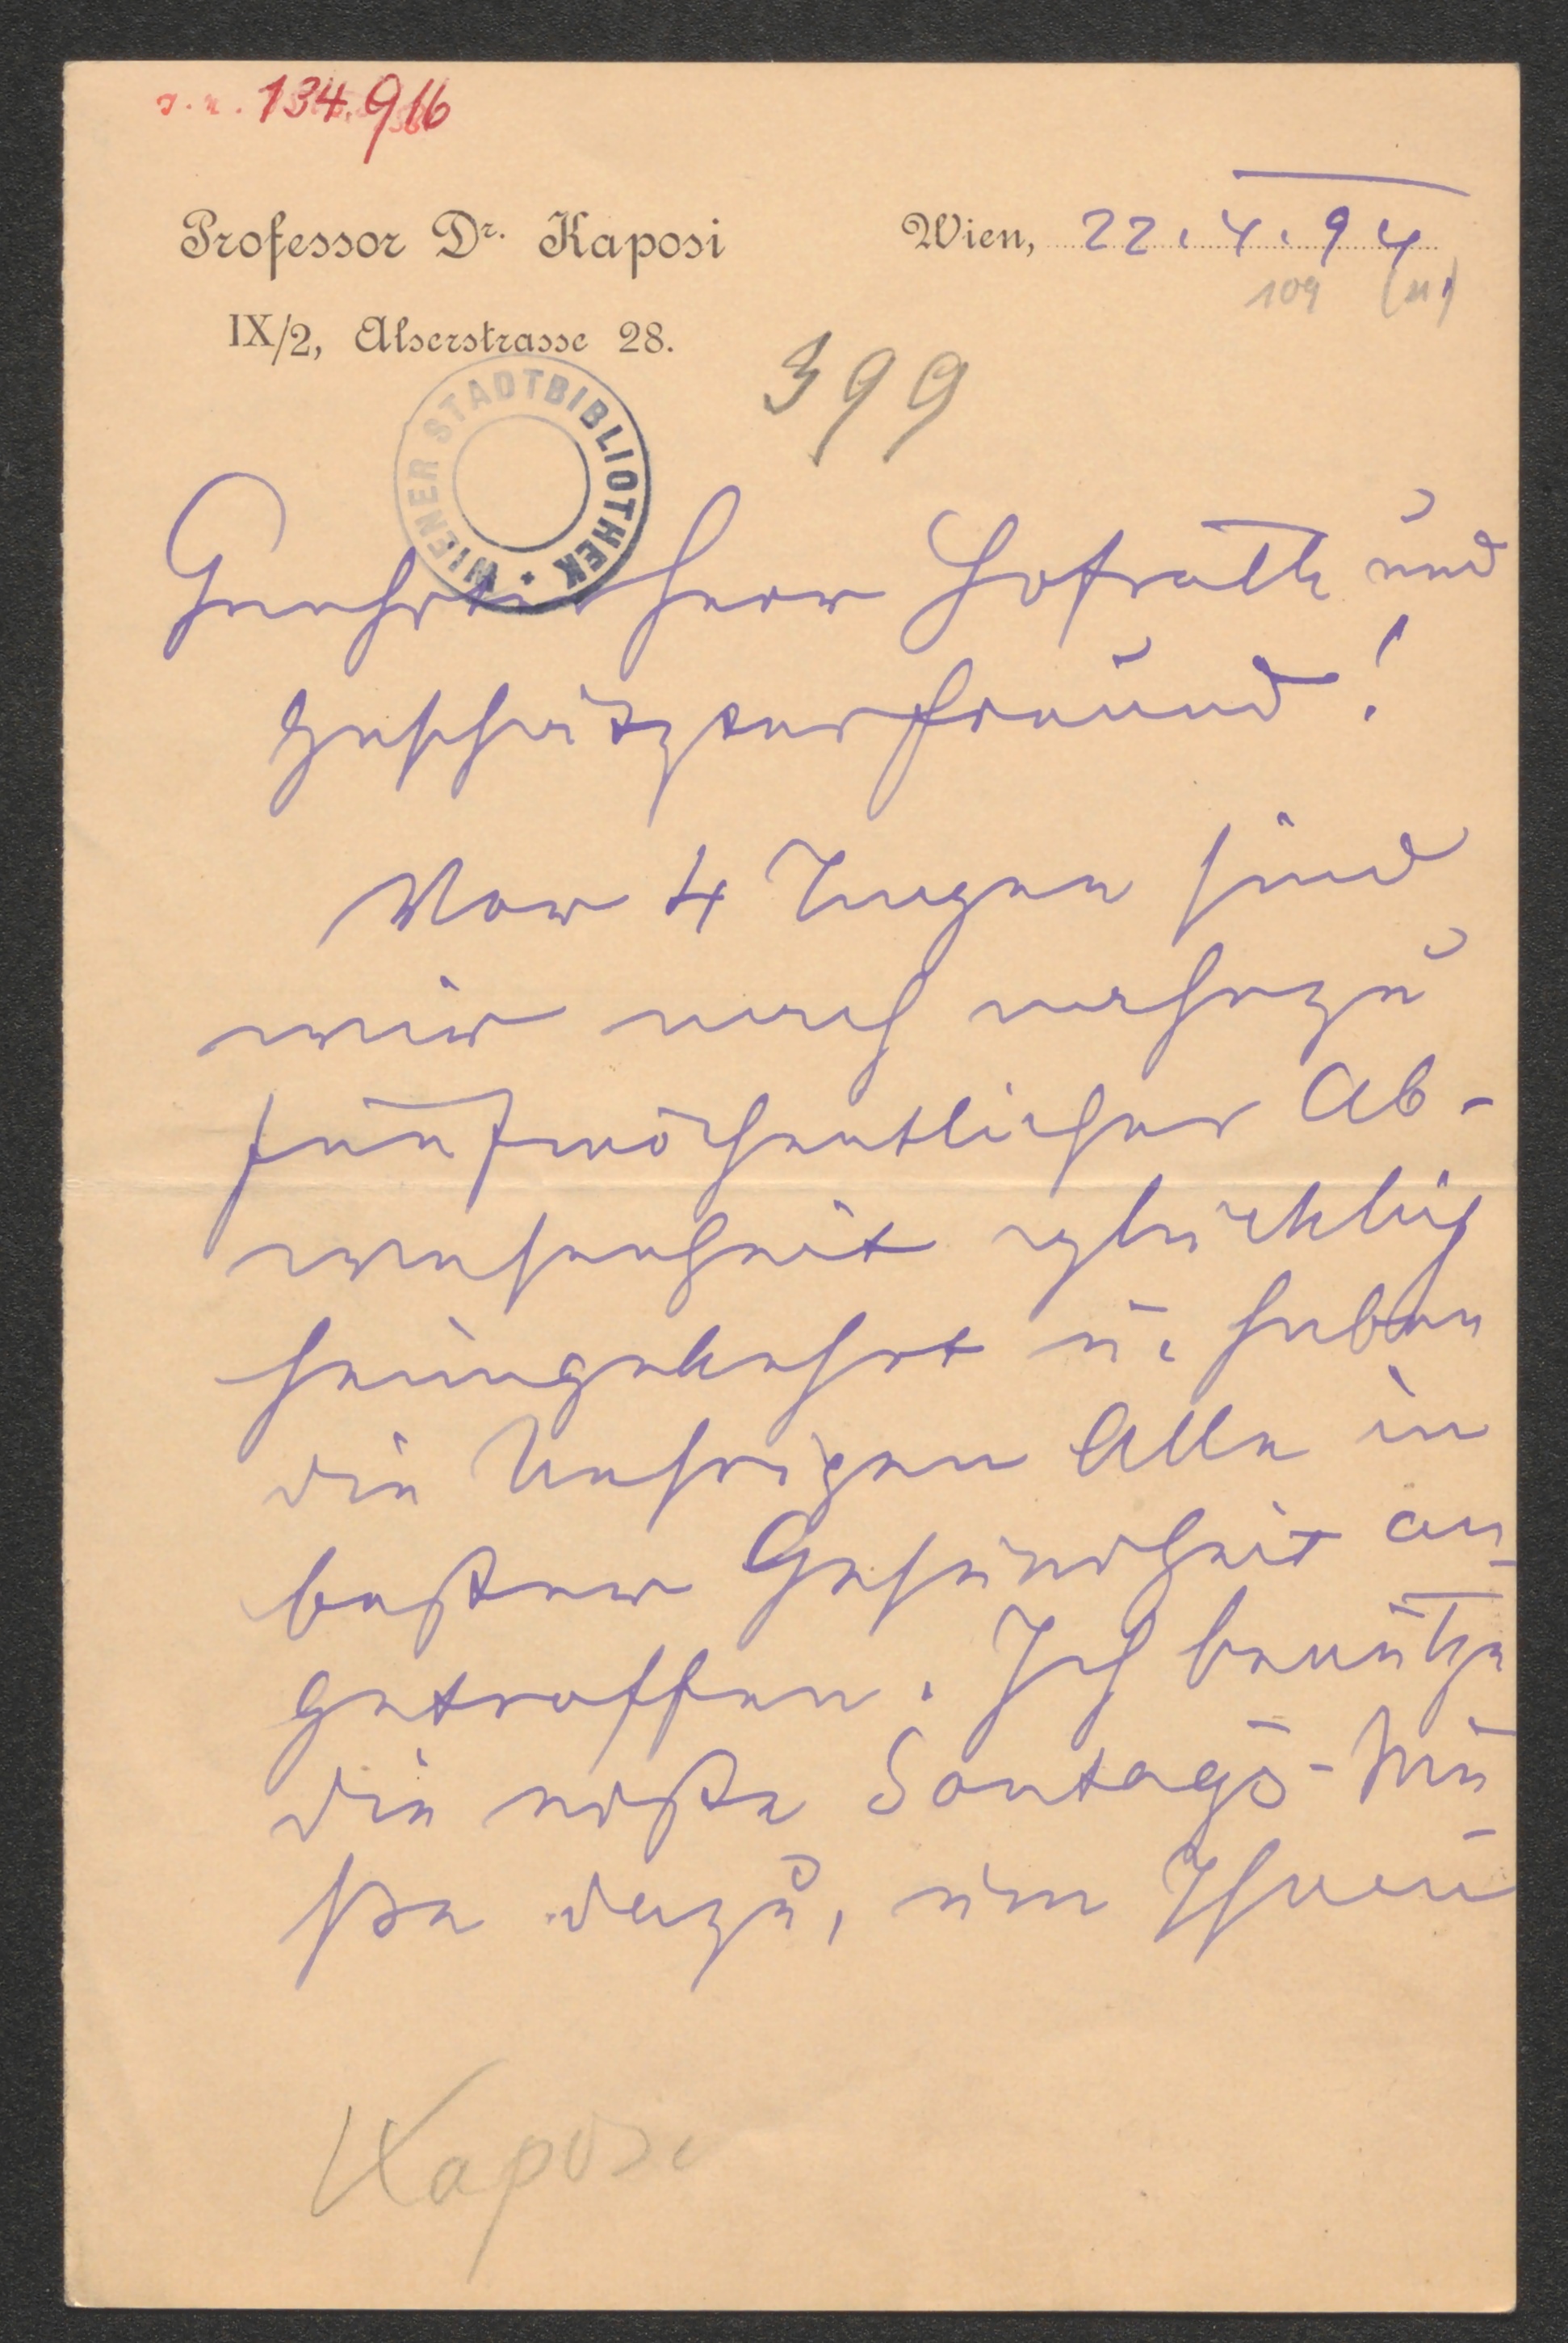 I. N. 134.916
Professor Dr. Kaposi
Wien, 22.4.94
109 (11)
IX/2, Alserstrasse 28.
399
WIENER STADTBIBLIOTHEK
Geehrter Herr Hofrath und
geschätzter Freund!
Vor 4 Tagen sind
wir nach nahezu
fünfwöchentlicher Ab-
wesenheit glücklich
heimgekehrt u. haben
die Unsrigen Alle in
bester Gesundheit an-
getroffen. Ich benütze
die erste Sontags-Mu
ße dazu, um Ihnen
Kaposi